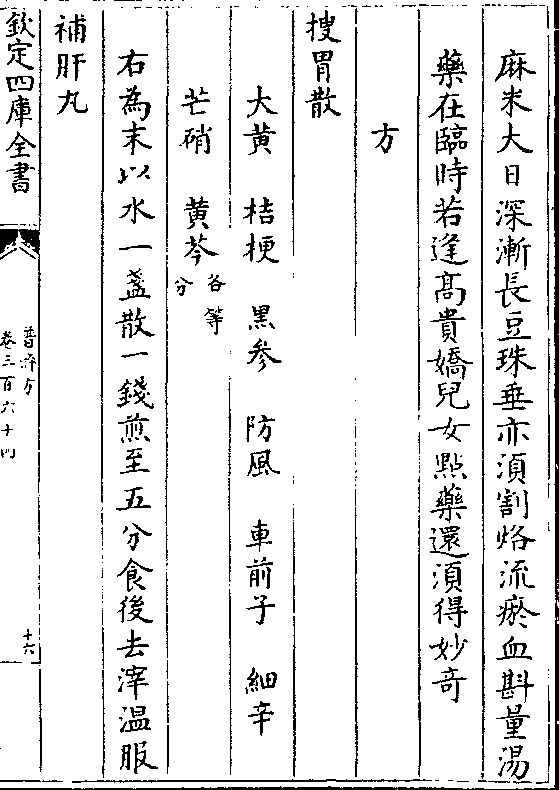 麻米大日深漸長豆珠垂亦湏割烙流瘀血斟量湯
藥在臨時若逢髙貴嬌兒女㸃藥還湏得妙竒
方
搜胃散
大黄　桔梗　黑参　防風　車前子　細辛
芒硝　黄芩各等分
右為末以水一盞散一錢煎至五分食後去滓温服
補肝丸
欽定四庫全書
普濟方
卷三百六十四
十六